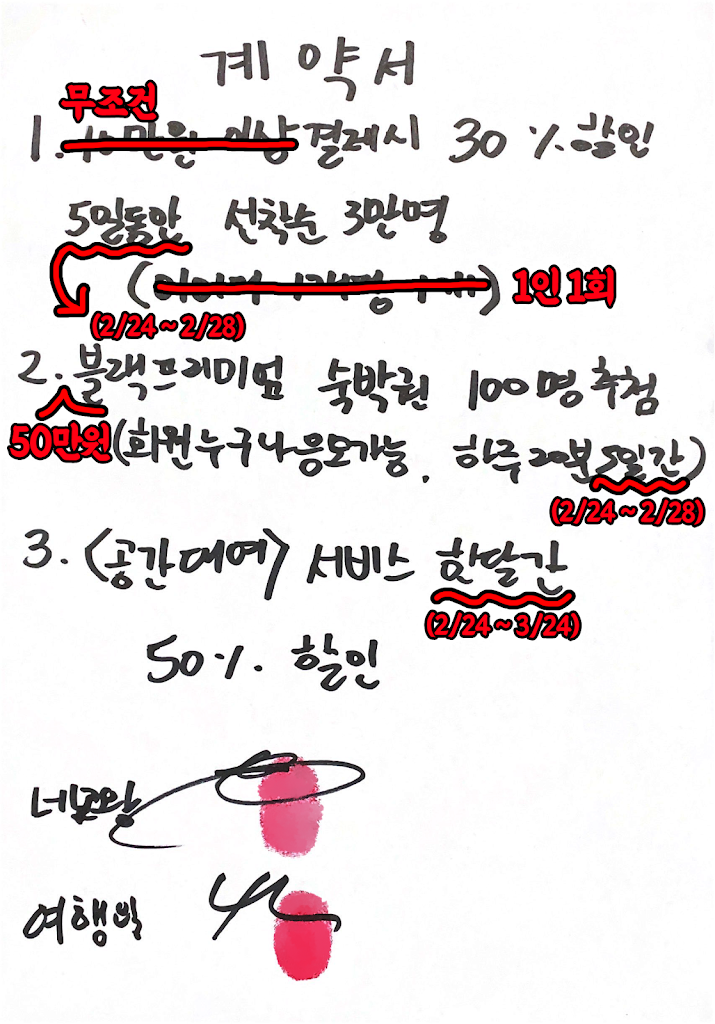 계약서
무조건
1. 10만원 이상 결제시 30 % 할인
5일동안 선착순 3만명
1인 1회
(2/24 ~ 2/28)
2. 블랙프리미엄 숙박권 100명 추첨
50만원 (회원누구나 응모가능, 하루 20분 5일간)
(2/24 ~ 2/28)
3. <공간대여> 서비스 한달간
(2/24 ~ 3/24)
50 % 할인
네고왕
여행박